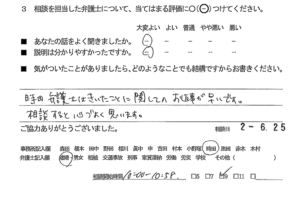 3 相談を担当した弁護士について、当てはまる評価に○(⊖)つけてください。
大変よい よい 普通 やや悪い 悪い
■ あなたの話をよく聞きましたか。
■ 説明は分かりやすかったですか。
■ 気がついたことがありましたら、どのようなことでも結構ですからお書きください。
時田弁護士はきいたことに関しての お返事が早いです。
相談すると心づよく思います。
ご協力ありがとうございました。
相談日 2-6.25
事務所記入欄
弁護士記入欄 離婚 男女 相続 交通事故 刑事 家賃滞納 労働 労災 学校 その他( )
相談開始時間 10:00-10:59